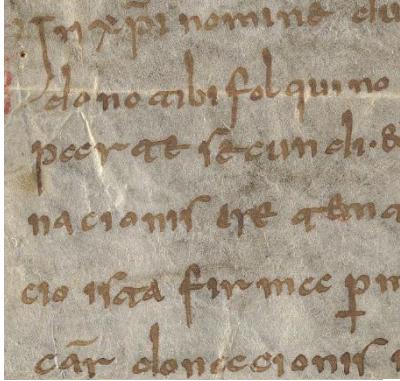 In xp̄i nomine du
dono tibi folquino
parte secundi · e
nacionis ire temt
cio ista firma p̱m
cār donacionis i